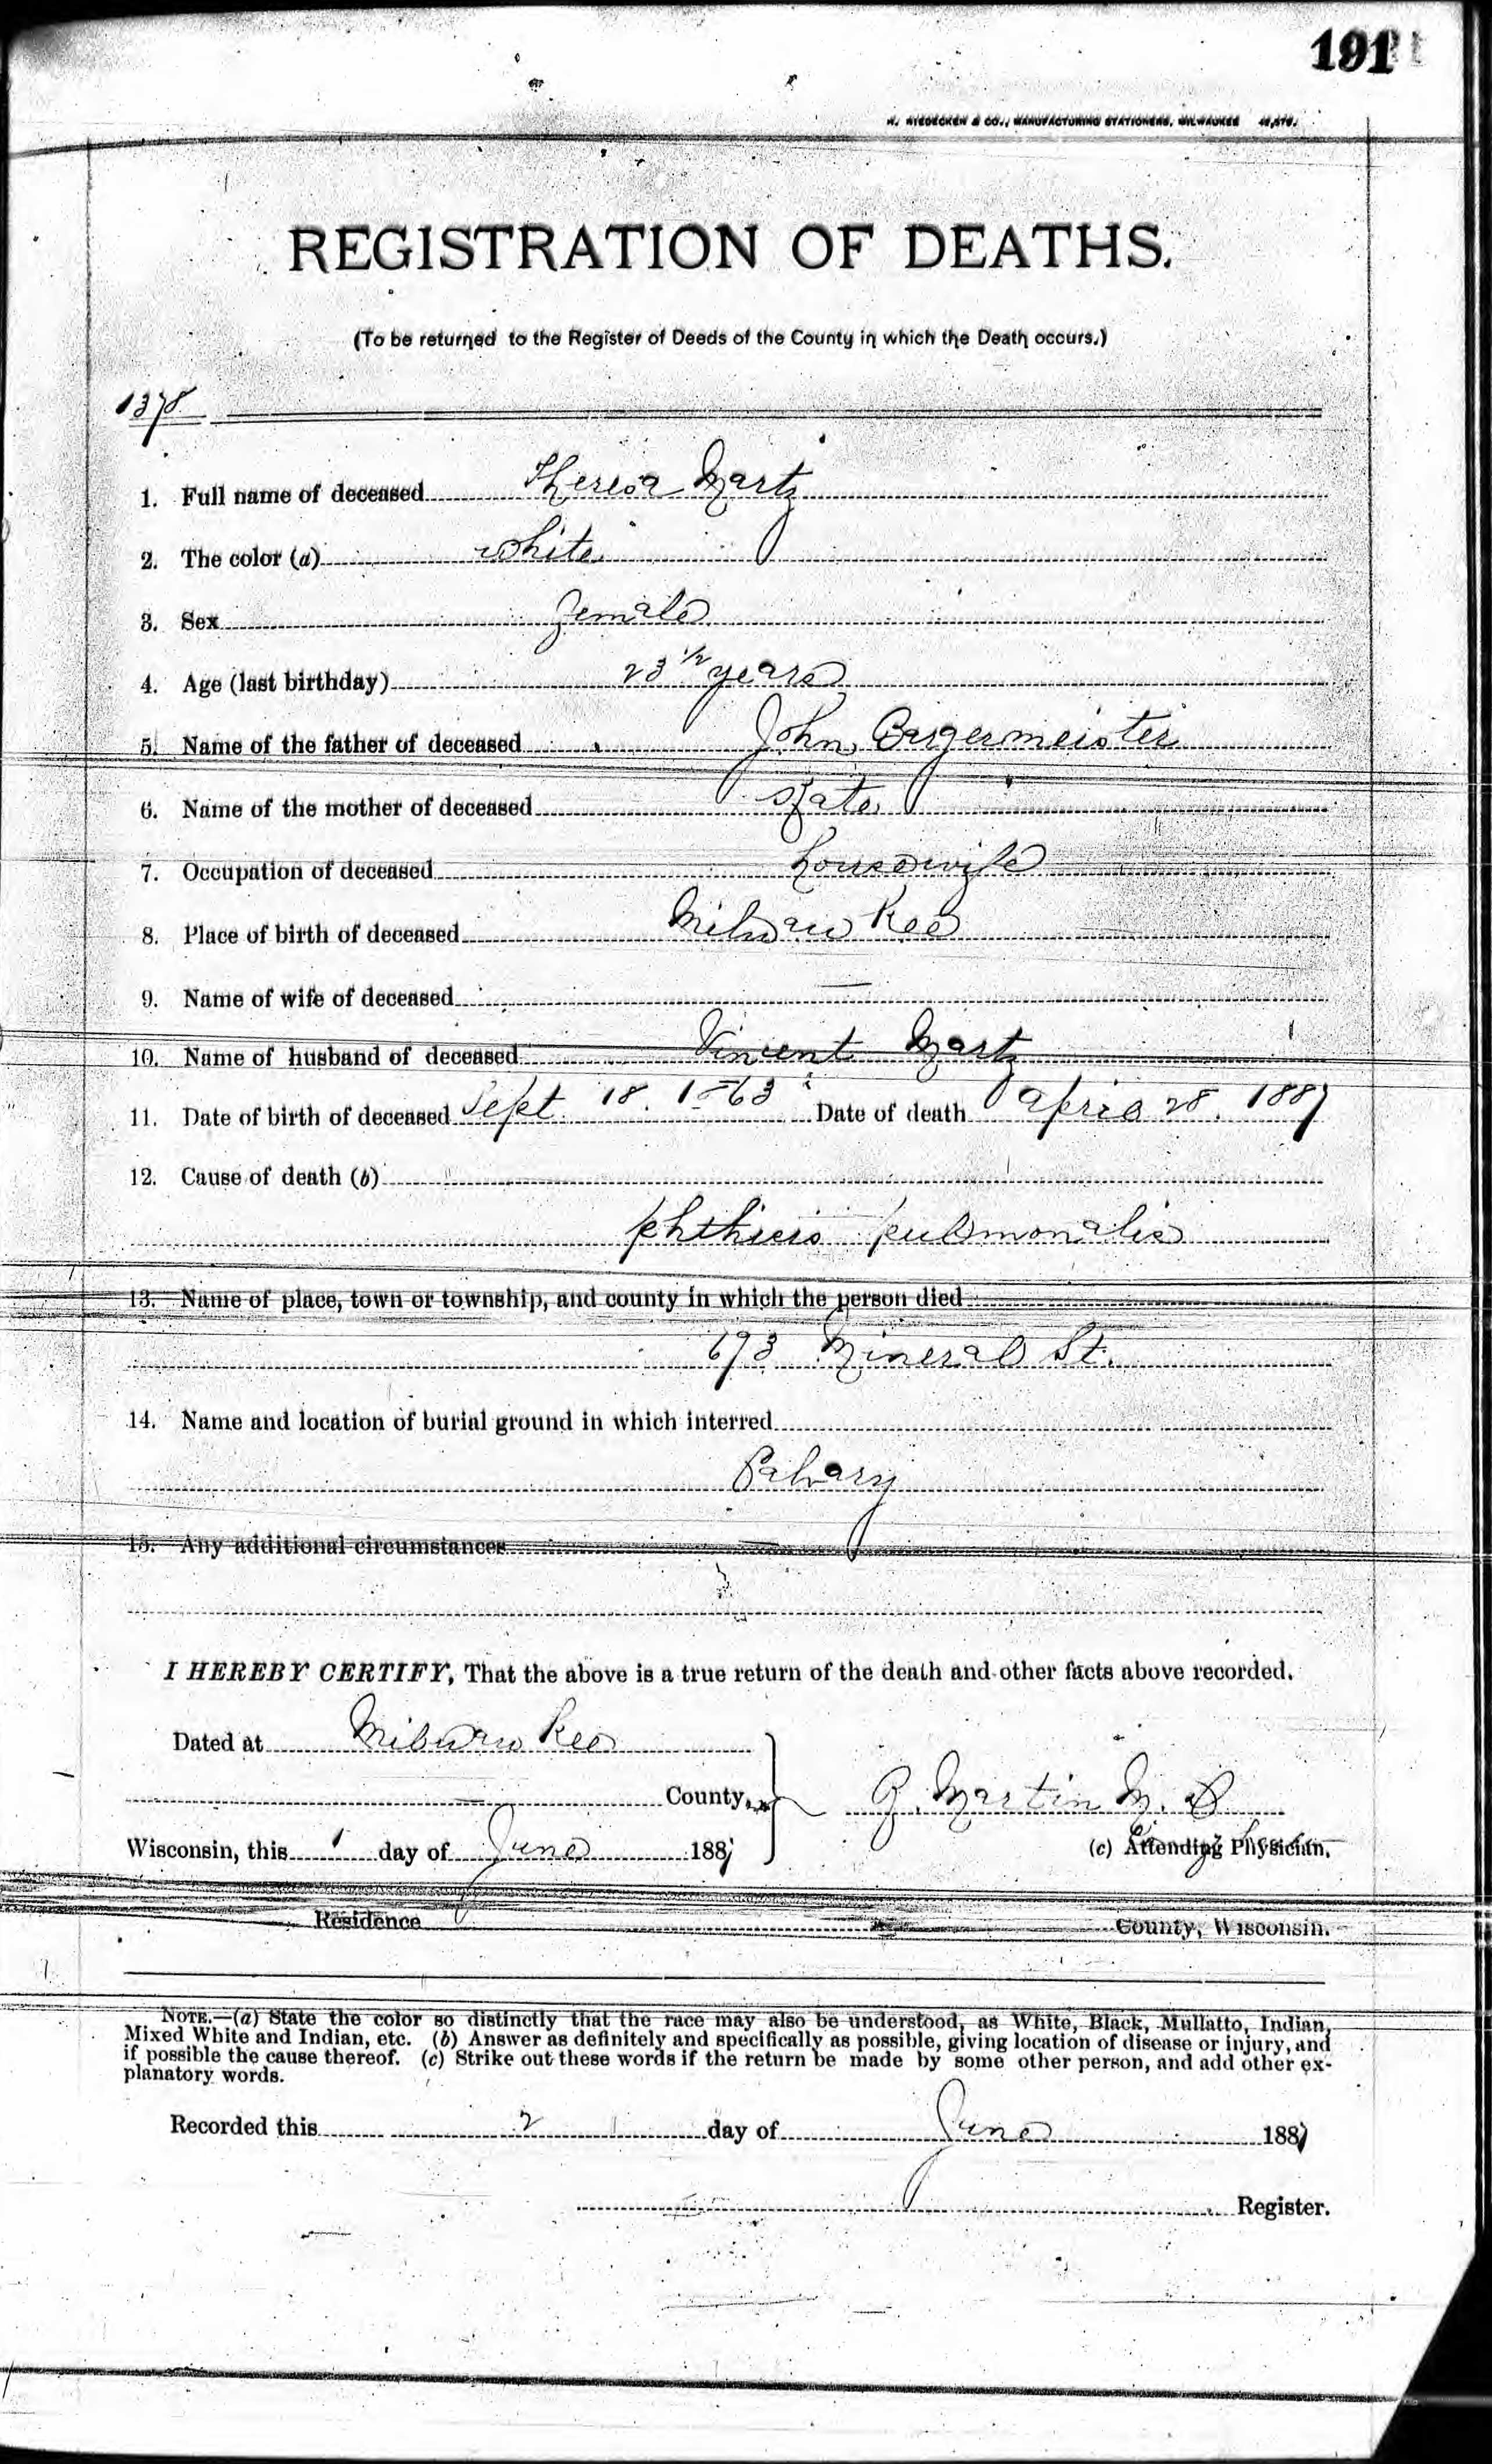 191
H. NIEDECKEN & CO., MANUFACTURING STATIONERS, MILWAUKEE
REGISTRATION OF DEATHS.
(To be returned to the Register of Deeds of the County in which the Death occurs.)
1378
1. Full name of deceased Theresa Martz
2. The color (a) white
3. Sex female
4. Age (last birthday) 23 1/2 years
5. Name of the father of deceased John Burgermeister
6. Name of the mother of deceased Kate
7. Occupation of deceased housewife
8. Place of birth of deceased Milwaukee
9. Name of wife of deceased —
10. Name of husband of deceased Vincent Martz
11. Date of birth of deceased Sept. 18. 1863 Date of death April 28. 1887
12. Cause of death (b)
phthisis pulmonalis
13. Name of place, town or township, and county in which the person died
693 Mineral St.
14. Name and location of burial ground in which interred
Calvary
15. Any additional circumstances
I HEREBY CERTIFY, That the above is a true return of the death and other facts above recorded.
Dated at Milwaukee
County, G. Martin M. D
Wisconsin, this 1 day of June 1887 (c) Attending Physician.
Residence County, Wisconsin.
NOTE.—(a) State the color so distinctly that the race may also be understood, as White, Black, Mullatto, Indian,
Mixed White and Indian, etc. (b) Answer as definitely and specifically as possible, giving location of disease or injury, and
if possible the cause thereof. (c) Strike out these words if the return be made by some other person, and add other ex-
planatory words.
Recorded this 2 day of June 1887
Register.